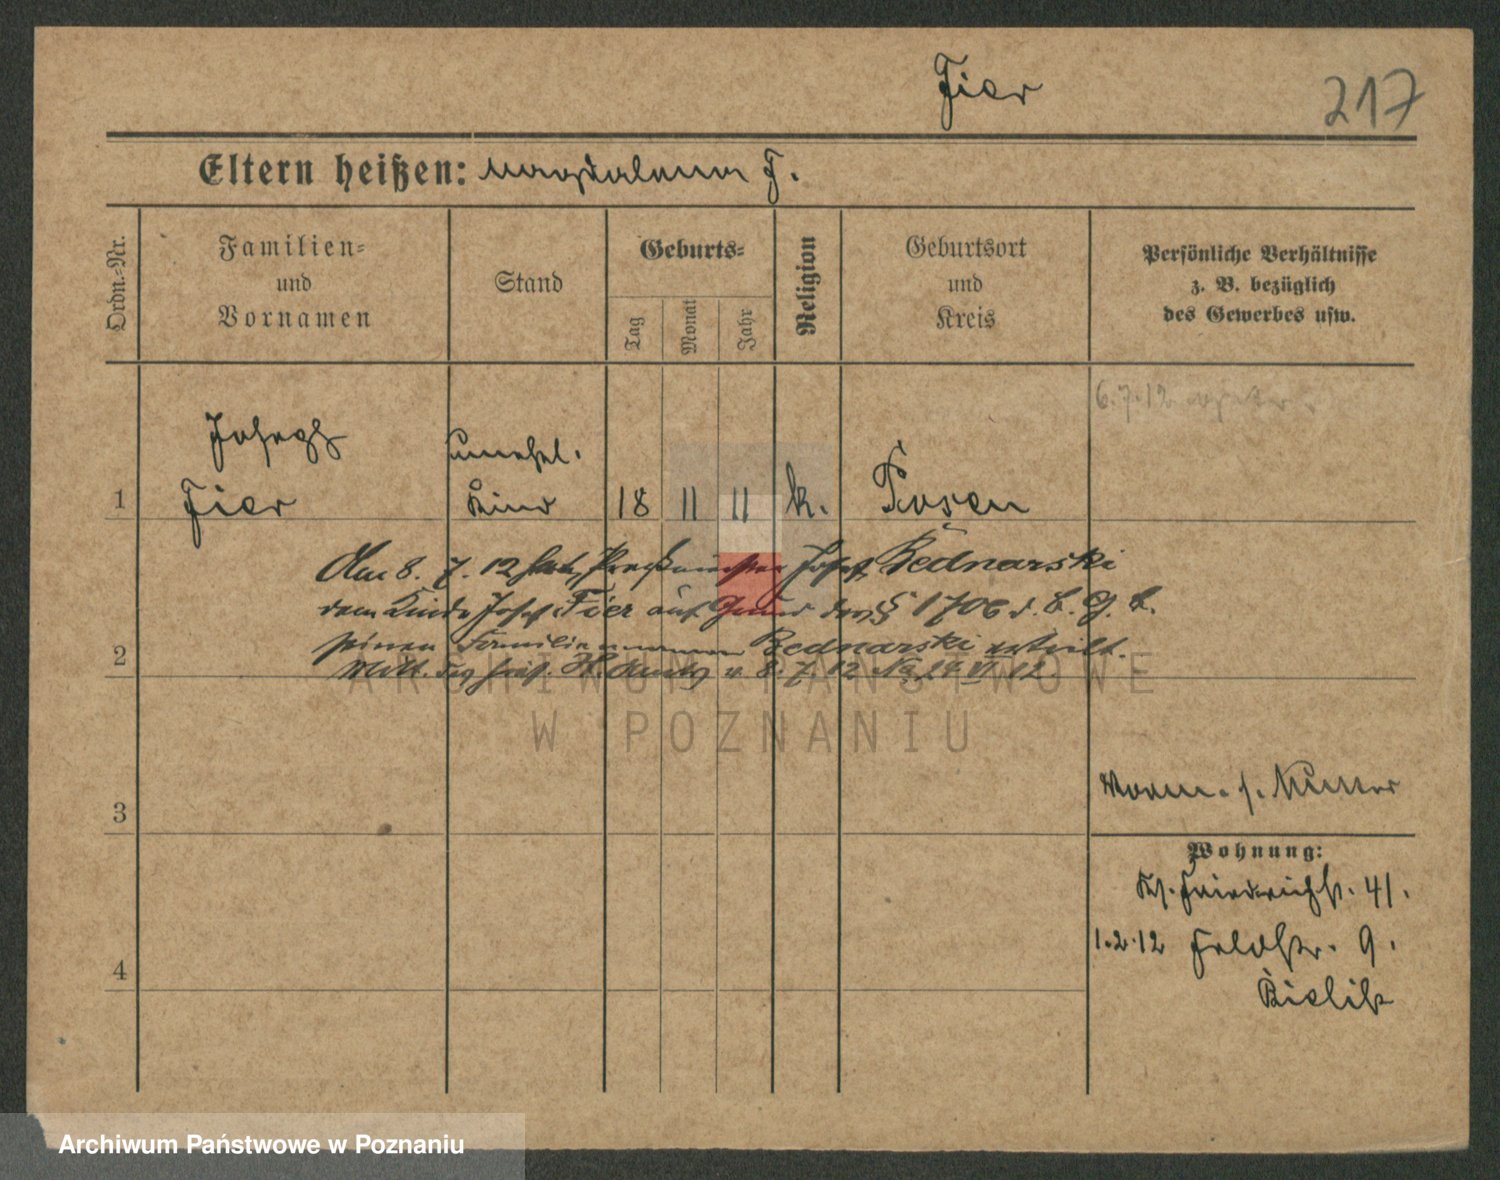 Fier
217
Eltern heißen: Magdalena F.
Ordn.-Nr.
Familien-
und
Vornamen
Stand
Geburts-
Tag
Monat
Jahr
Religion
Geburtsort
und
Kreis
Persönliche Verhältnisse
z. B. bezüglich
des Gewerbes usw.
6.7.12
Joseph
unehel.
1 Fier Kind 18 11 11 k. Posen
Am 8. 7. 12 hat Josef Bednarski
dem Kinde Josef Fier auf Grund des § 1706 d. B. G. B.
2 seinen Familiennamen Bednarski erteilt.
Mitt. des v. 8. 7. 12 No 24 VI 12.
ARCHIWUM PAŃSTWOWE
W POZNANIU
3
Vorm. s. Mutter
Wohnung:
Friedrichstr. 41.
1.2.12 Feldstr. 9.
4
Archiwum Państwowe w Poznaniu